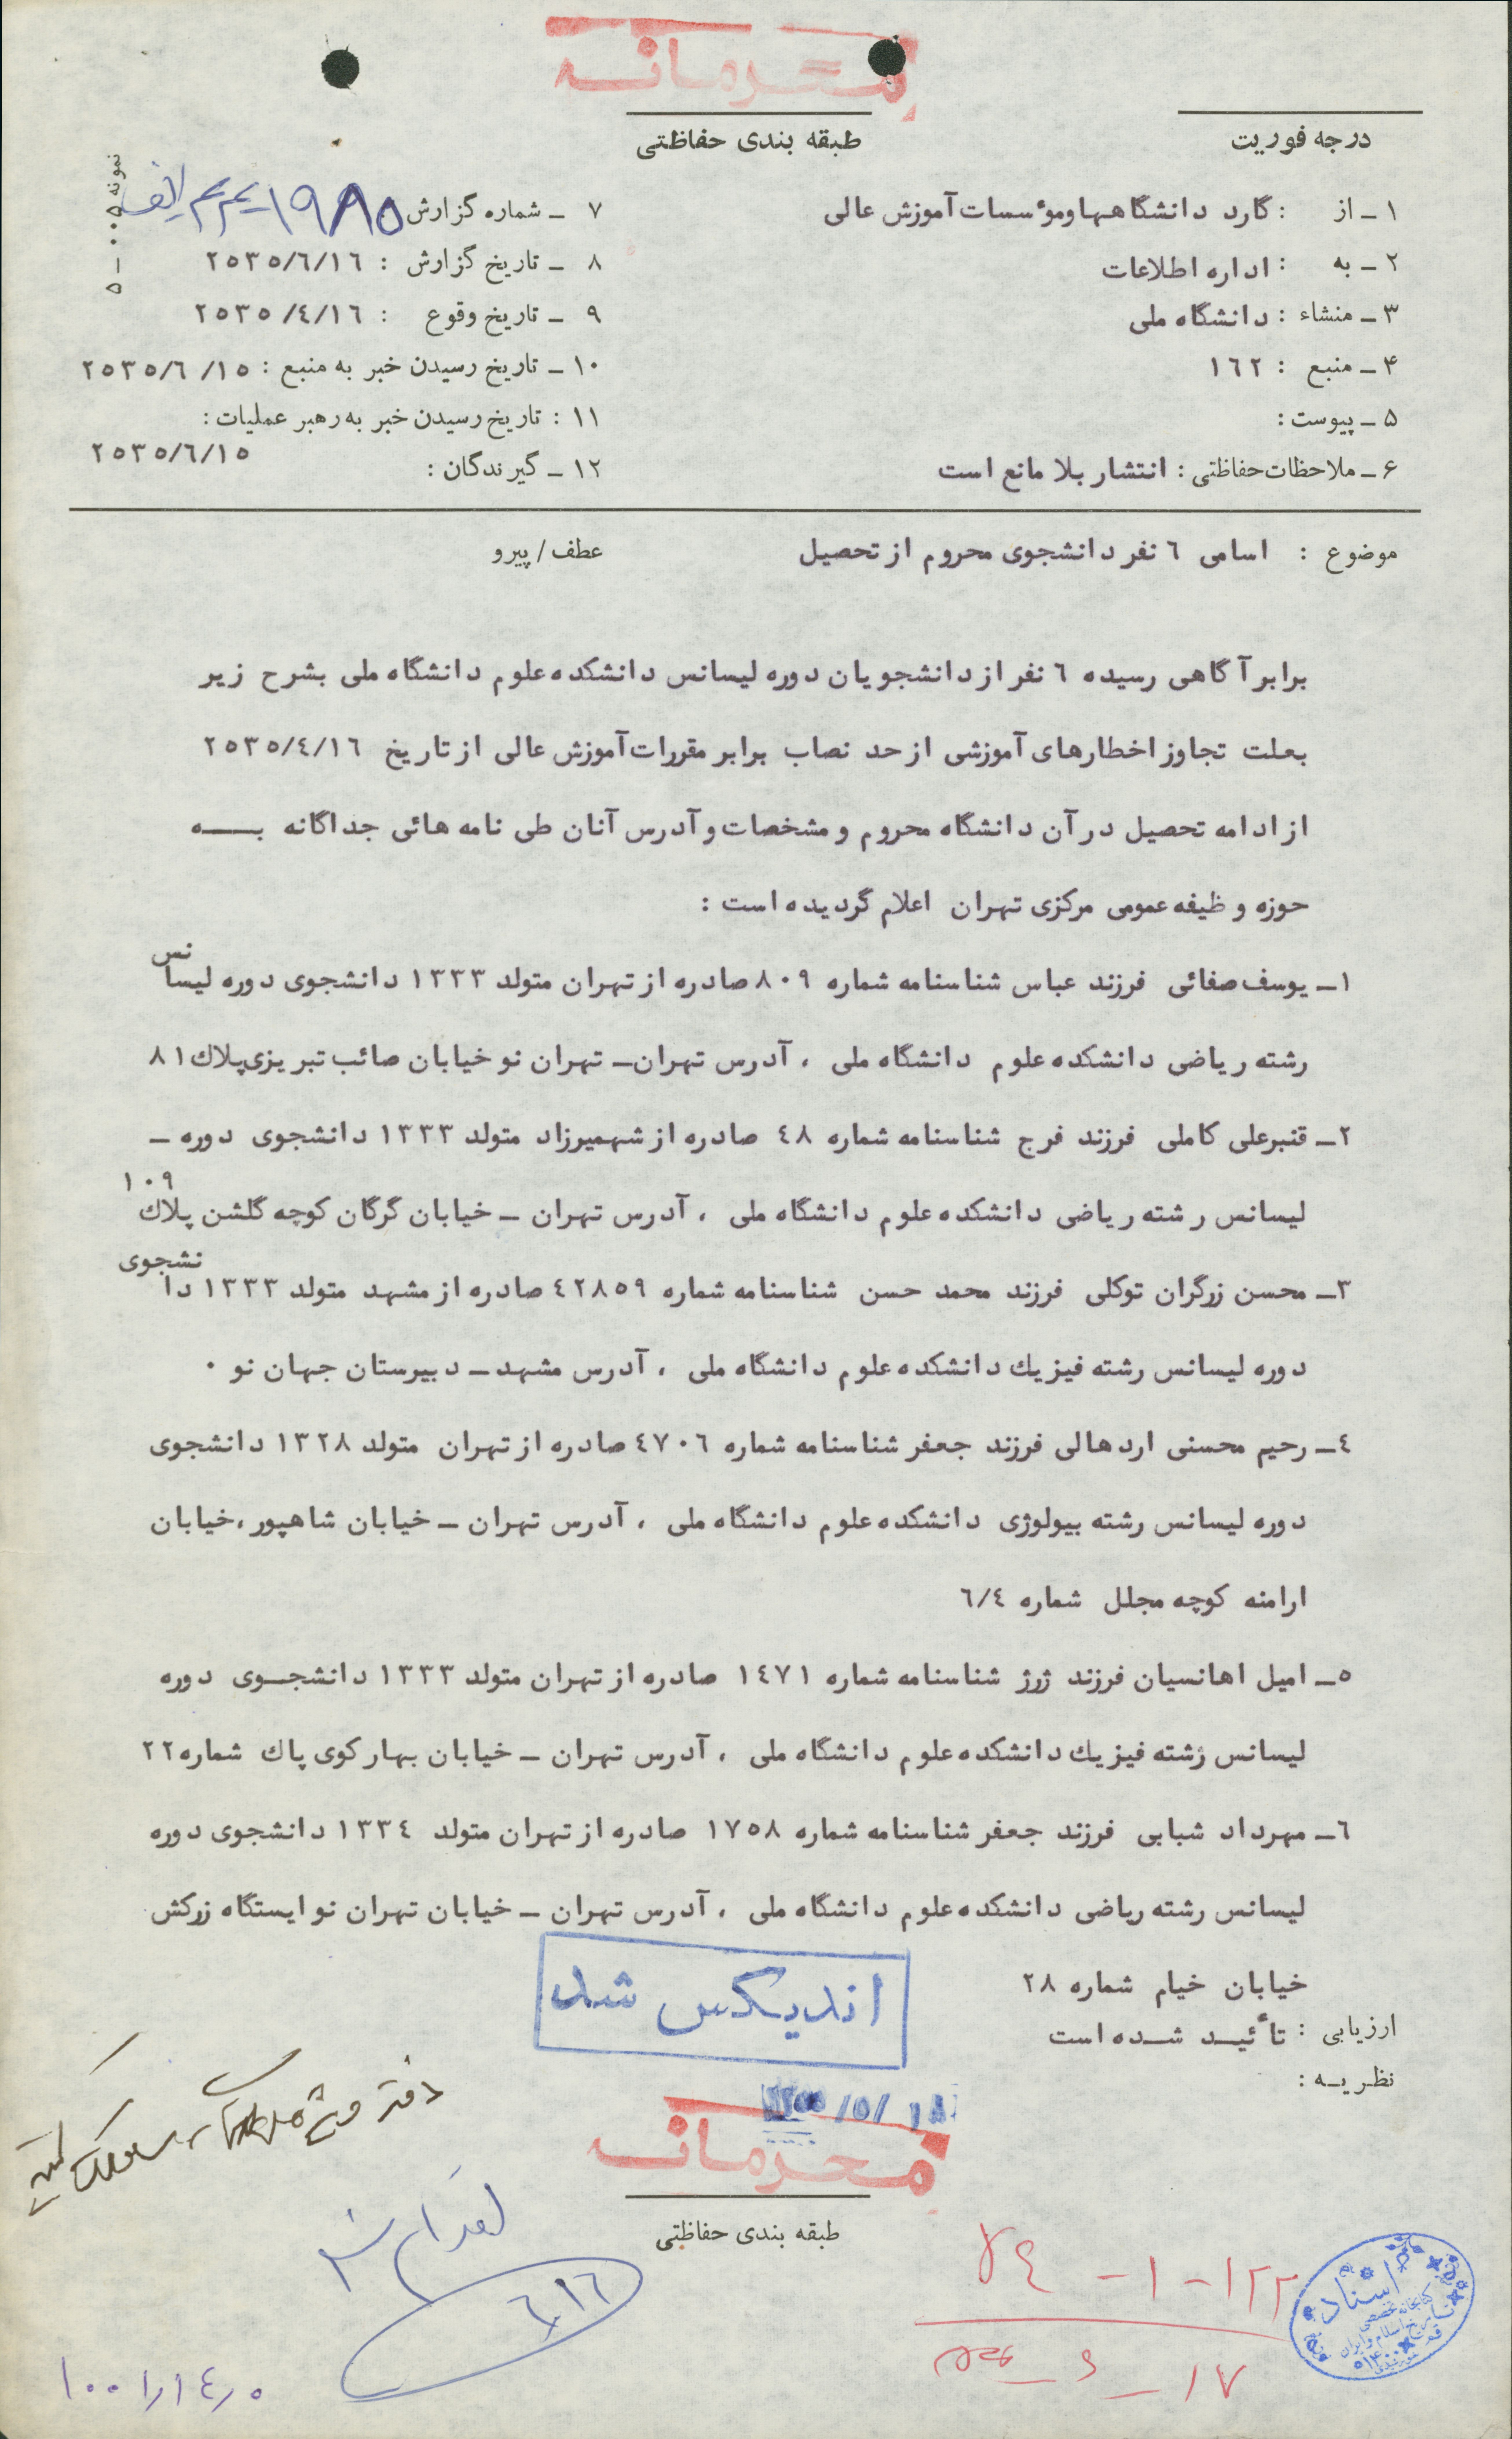 محرمانه
درجه فوریت
طبقه بندی حفاظتی
نمونه ۰۰۵-۵
۱ - از : گارد دانشگاهها ومؤسسات آموزش عالی
۲ - به : اداره اطلاعات
۳ - منشاء : دانشگاه ملی
۴ - منبع : ۱٦۲
۵ - پیوست :
۶ - ملاحظات حفاظتی : انتشار بلا مانع است
۷ - شماره گزارش ۱۹۸۵
۸ - تاریخ گزارش : ۲۵۳۵/٦/۱٦
۹ - تاریخ وقوع : ۲۵۳۵/٤/۱٦
۱۰ - تاریخ رسیدن خبر به منبع : ۲۵۳۵/٦/۱۵
۱۱ : تاریخ رسیدن خبر به رهبر عملیات :
۲۵۳۵/٦/۱۵
۱۲ - گیرندگان :
موضوع : اسامی ٦ نفر دانشجوی محروم از تحصیل
عطف / پیرو
برابر آگاهی رسیده ٦ نفر از دانشجویان دوره لیسانس دانشکده علوم دانشگاه ملی بشرح زیر
بعلت تجاوز اخطارهای آموزشی از حد نصاب برابر مقررات آموزش عالی از تاریخ ۲۵۳۵/٤/۱٦
از ادامه تحصیل در آن دانشگاه محروم و مشخصات و آدرس آنان طی نامه هائی جداگانه بـــه
حوزه وظیفه عمومی مرکزی تهران اعلام گردیده است :
۱ـ یوسف صفائی فرزند عباس شناسنامه شماره ۸۰۹ صادره از تهران متولد ۱۳۳۳ دانشجوی دوره لیسانس
رشته ریاضی دانشکده علوم دانشگاه ملی ، آدرس تهران ـ تهران نو خیابان صائب تبریزی پلاك ۸۱
۲ـ قنبرعلی کاملی فرزند فرج شناسنامه شماره ٤۸ صادره از شهمیرزاد متولد ۱۳۳۳ دانشجوی دوره ـ
لیسانس رشته ریاضی دانشکده علوم دانشگاه ملی ، آدرس تهران ـ خیابان گرگان کوچه گلشن پلاك ۱۰۹
۳ـ محسن زرگران توکلی فرزند محمد حسن شناسنامه شماره ٤۲۸۵۹ صادره از مشهد متولد ۱۳۳۳ دانشجوی
دوره لیسانس رشته فیزیك دانشکده علوم دانشگاه ملی ، آدرس مشهد ـ دبیرستان جهان نو ۰
٤ـ رحیم محسنی اردهالی فرزند جعفر شناسنامه شماره ٤۷۰٦ صادره از تهران متولد ۱۳۲۸ دانشجوی
دوره لیسانس رشته بیولوژی دانشکده علوم دانشگاه ملی ، آدرس تهران ـ خیابان شاهپور ، خیابان
ارامنه کوچه مجلل شماره ٦/٤
۵ـ امیل اهانسیان فرزند ژرژ شناسنامه شماره ۱٤۷۱ صادره از تهران متولد ۱۳۳۳ دانشجـوی دوره
لیسانس رشته فیزیك دانشکده علوم دانشگاه ملی ، آدرس تهران ـ خیابان بهار کوی پاك شماره ۲۲
٦ـ مهرداد شبابی فرزند جعفر شناسنامه شماره ۱۷۵۸ صادره از تهران متولد ۱۳۳٤ دانشجوی دوره
لیسانس رشته ریاضی دانشکده علوم دانشگاه ملی ، آدرس تهران ـ خیابان تهران نو ایستگاه زرکش
خیابان خیام شماره ۲۸
ارزیابی : تأئیـد شـده است
نظریـه :
اندیکس شد
محرمانه
طبقه بندی حفاظتی
۱۲۲-۱-۷٤
٦/۱٦
۱۰۰۱/۱٤/۵
اسناد